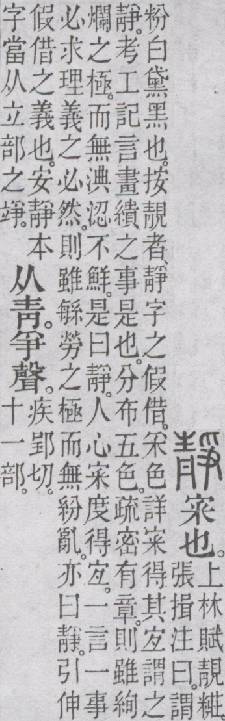 靜
宷也。
上林賦靚糚。
張揖注曰。謂
粉白黛黑也。按靚者靜字之假借。采色詳宷得其宐謂之
靜。考工記言畫繢之事是也。分布五色。疏密有章。則雖絢
爛之極。而無淟涊不鮮。是曰靜。人心宷度得宐。一言一事
必求理義之必然。則雖緐勞之極而無紛亂。亦曰靜。引伸
假借之義也。安靜本
字當从立部之竫。
从青。爭聲。
疾郢切。
十一部。